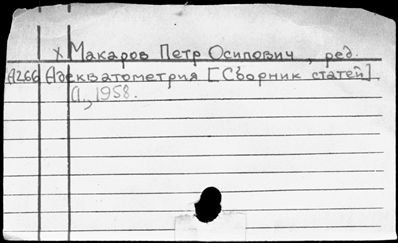 х Макаров Петр Осипович, ред.
А266 Адекватометрия [Сборник статей]
Л., 1958.